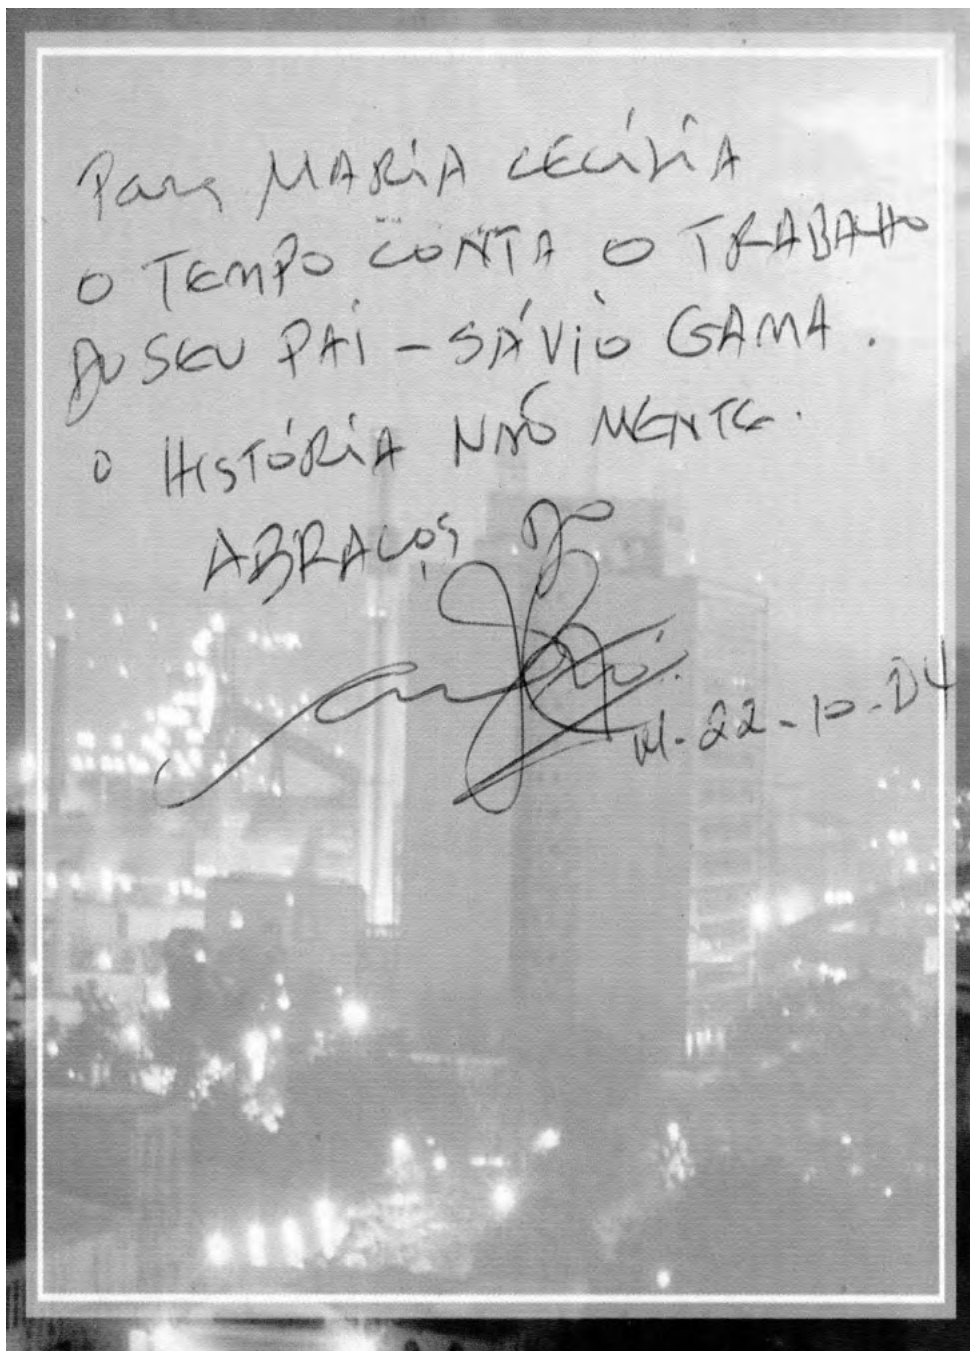 Para MARIA CECÍLIA
O TEMPO CONTA O TRABALHO
DO SEU PAI - SÁVIO GAMA.
O HISTÓRIA NÃO MENTE.
ABRAÇOS DO
22-10-04